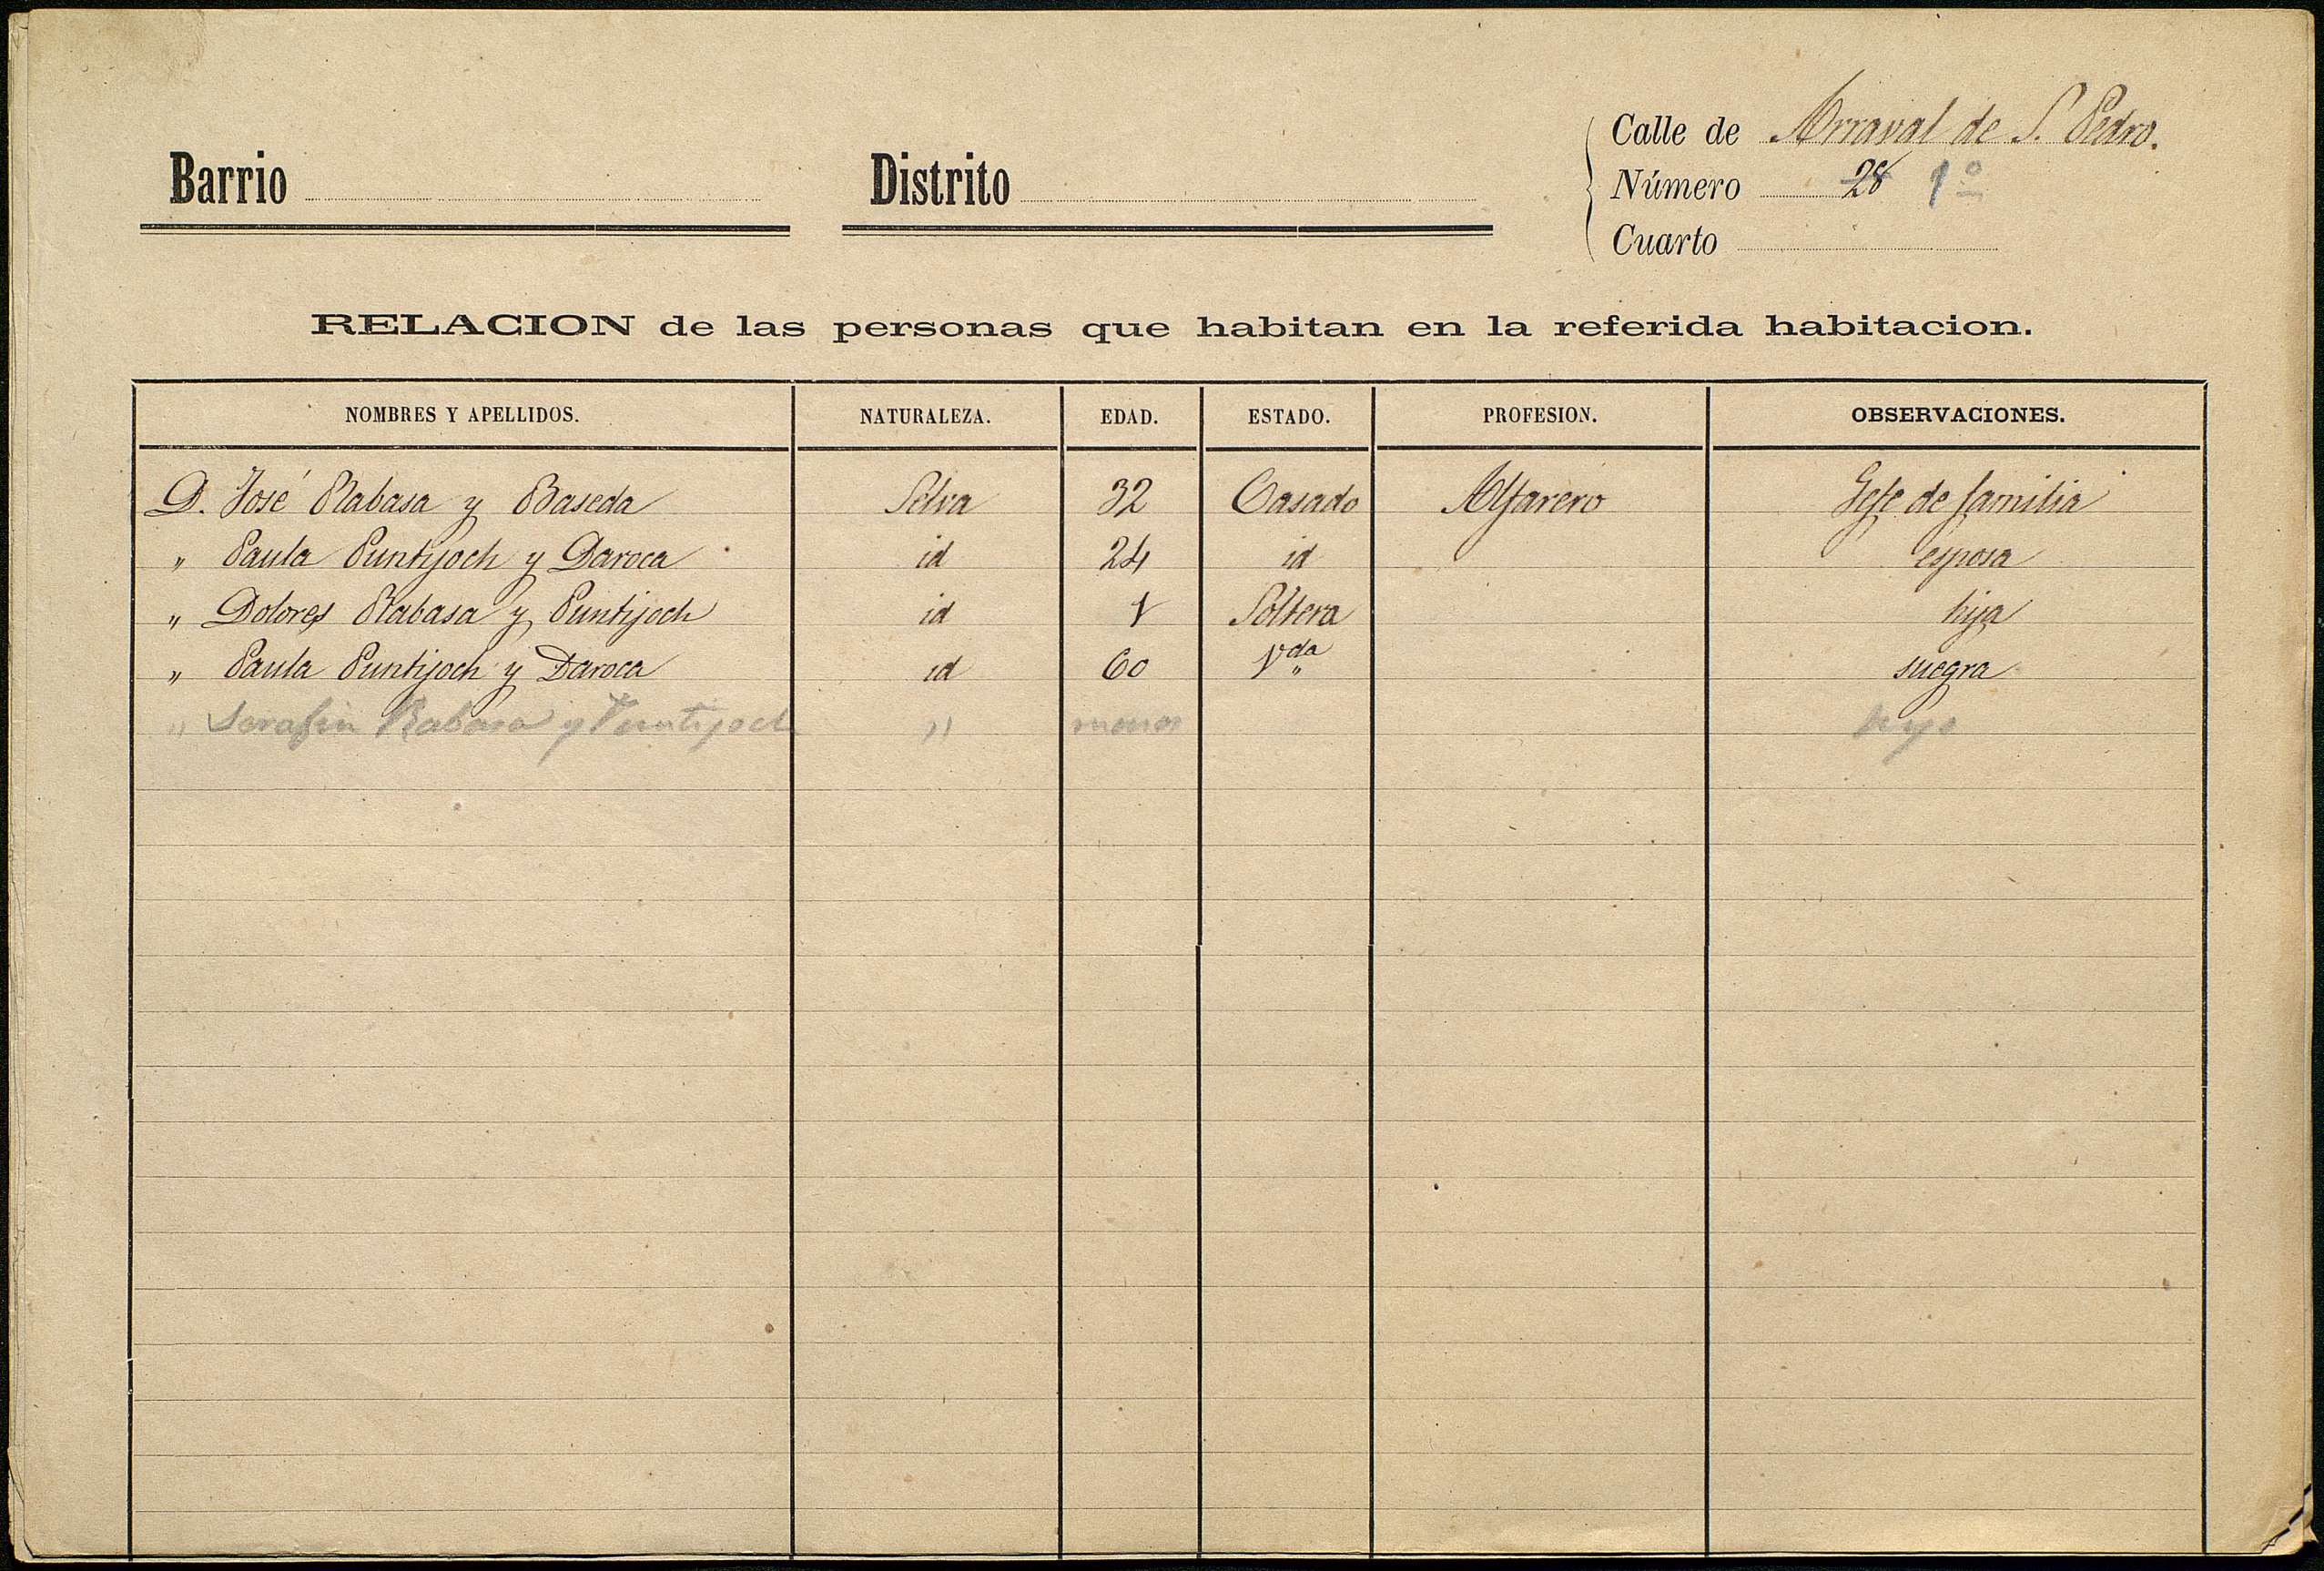 Calle de Arraval de S. Pedro.
Barrio Distrito Número 28 1º
Cuarto
RELACION de las personas que habitan en la referida habitacion.
NOMBRES Y APELLIDOS. NATURALEZA. EDAD. ESTADO. PROFESION. OBSERVACIONES.
D. José Rabasa y Baseda Selva 32 Casado Alfarero Gefe de familia
„ Paula Puntijoch y Daroca id 24 id esposa
„ Dolores Rabasa y Puntijoch id 1 Soltera hija
„ Paula Puntijoch y Daroca id 60 Vda „ suegra
„ Serafin Rabasa y Puntijoch „ menor hijo